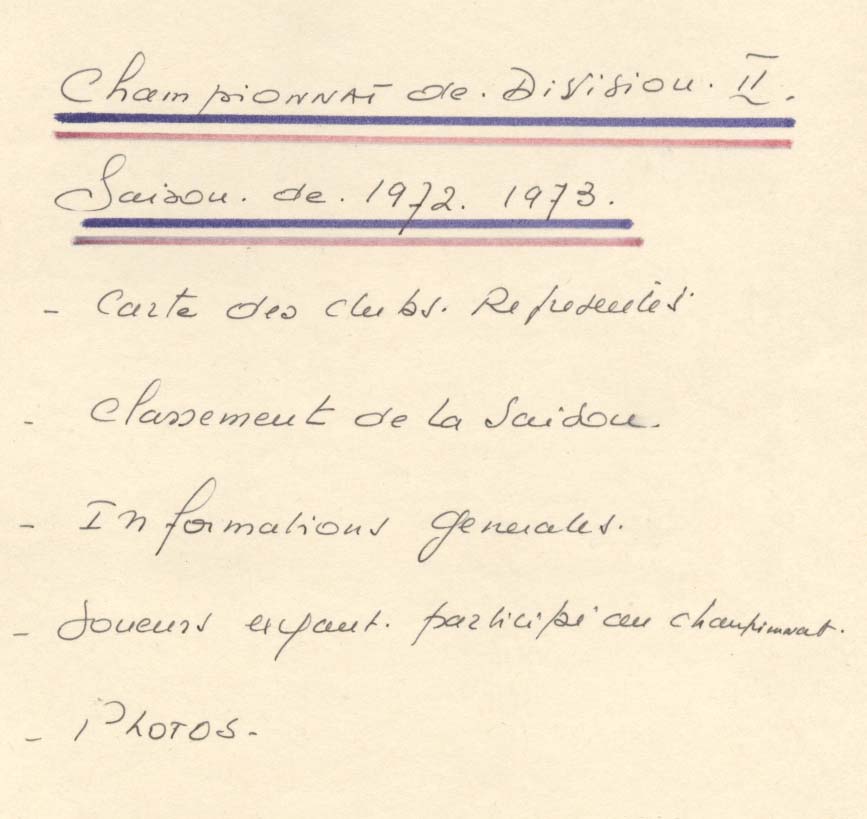 Championnat de. Division. II.
Saison. de. 1972. 1973.
- Carte des clubs. Représentés
- Classement de la Saison.
- Informations generales.
- Joueurs ayant. participé au championnat.
- Photos.